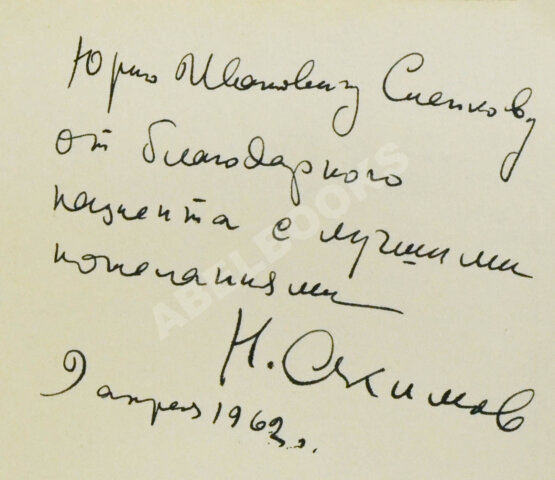 Юрию Ивановичу Сленкову
от благодарного
пациента с лучшими
пожеланиями
Н. Акимов
9 апреля 1962 г.
ABELBOOKS